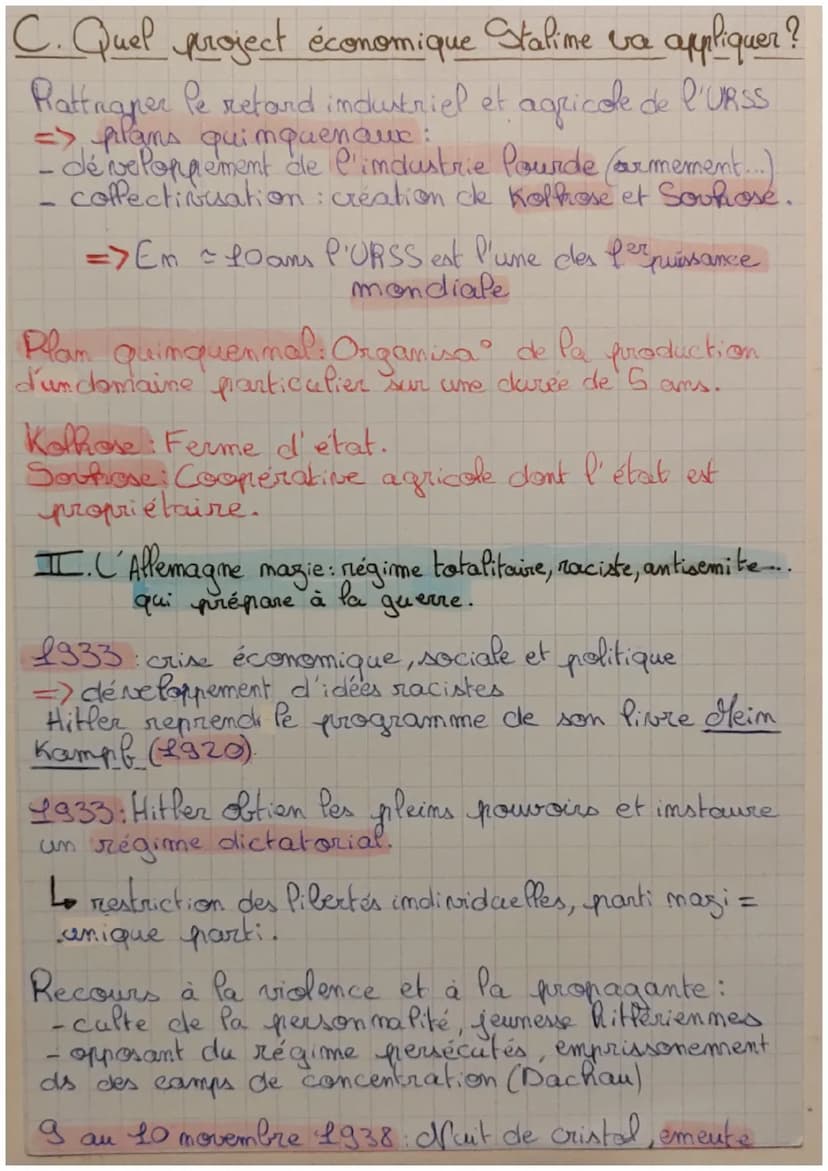 C. Quel project économique Staline va appliquer?
Rattraper le retard industriel et agricole de l'URSS
=> plans quinquenaux :
- développement de l'industrie lourde (armement...)
- collectivisation : création de Kolhose et Sovhose.
=> En ≃ 10 ans l'URSS est l'une des 1er puissance
mondiale
Plan quinquennal : Organisa° de la production
d'un domaine particulier sur une durée de 5 ans.
Kolhose : Ferme d'état.
Sovhose : Coopérative agricole dont l'état est
propriétaire.
II. L'Allemagne nazie : régime totalitaire, raciste, antisemite...
qui prépare à la guerre.
1933 : crise économique, sociale et politique
=> développement d'idées racistes
Hitler reprend le programme de son livre Mein
Kampf (1920)
1933 : Hitler obtien les pleins pouvoirs et instaure
un régime dictatorial.
↳ restriction des libertés individuelles, parti nazi =
unique parti.
Recours à la violence et à la propagante :
- culte de la personnalité, jeunesse hitlériennes
- opposant du régime persécutés, emprissonement
ds des camps de concentration (Dachau)
9 au 10 novembre 1938 : Nuit de cristal, emeute